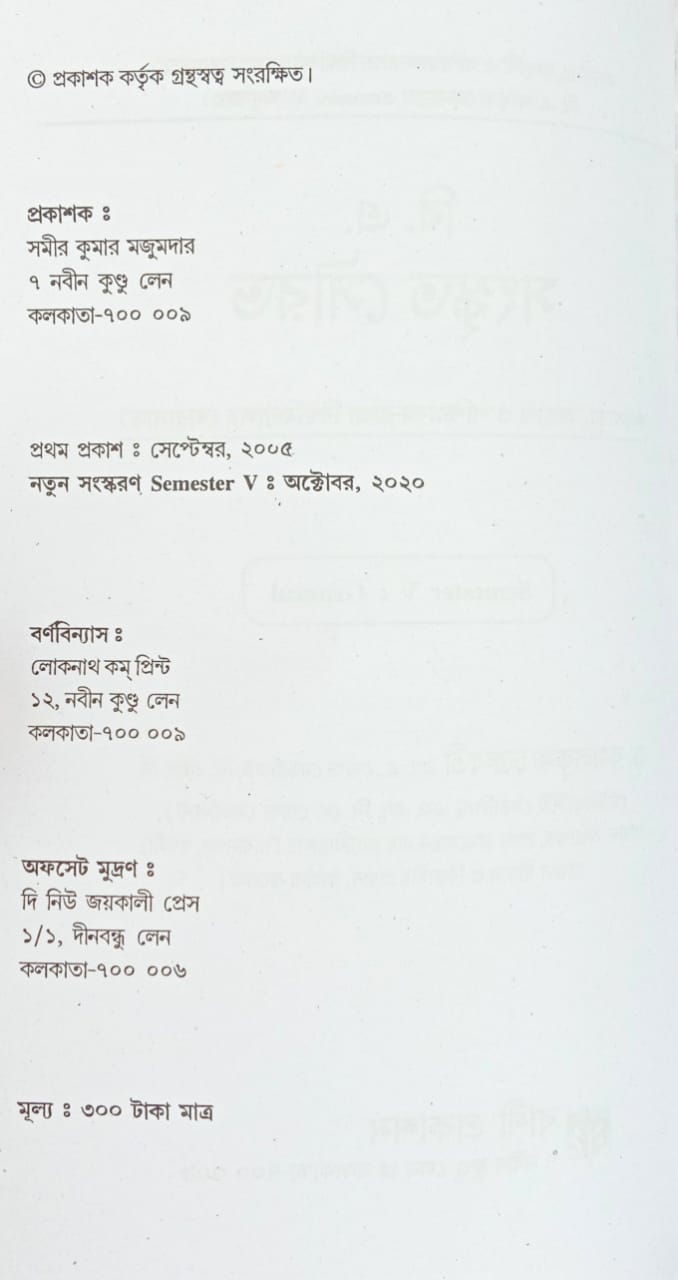 © প্রকাশক কর্তৃক গ্রন্থস্বত্ব সংরক্ষিত।
প্রকাশক ঃ
সমীর কুমার মজুমদার
৭ নবীন কুণ্ডু লেন
কলকাতা-৭০০ ০০৯
প্রথম প্রকাশ ঃ সেপ্টেম্বর, ২০০৫
নতুন সংস্করণ Semester V ঃ অক্টোবর, ২০২০
বর্ণবিন্যাস ঃ
লোকনাথ কম্ প্রিন্ট
১২, নবীন কুণ্ডু লেন
কলকাতা-৭০০ ০০৯
অফসেট মুদ্রণ ঃ
দি নিউ জয়কালী প্রেস
১/১, দীনবন্ধু লেন
কলকাতা-৭০০ ০০৬
মূল্য ঃ ৩০০ টাকা মাত্র